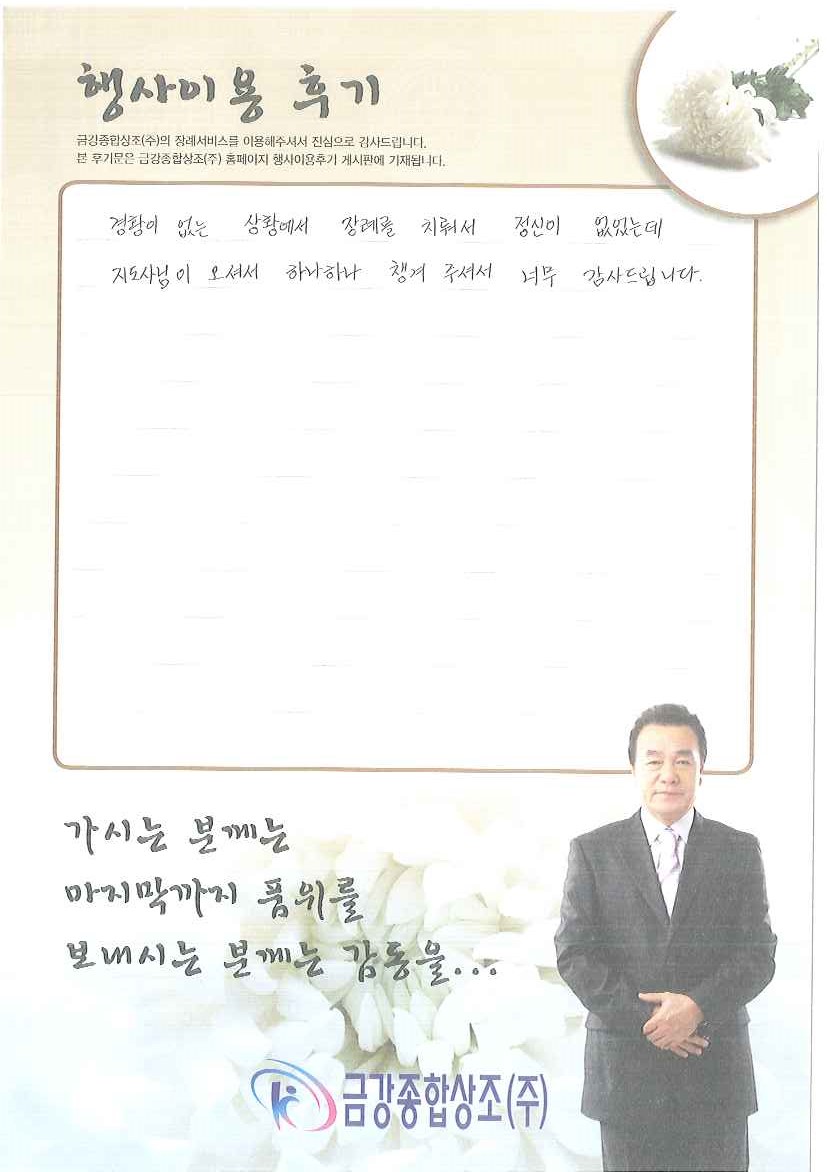 행사이용 후기
금강종합상조(주)의 장례서비스를 이용해주셔서 진심으로 감사드립니다.
본 후기문은 금강종합상조(주) 홈페이지 행사이용후기 게시판에 기재됩니다.
경황이 없는 상황에서 장례를 치뤄서 정신이 없었는데
지도사님이 오셔서 하나하나 챙겨 주셔서 너무 감사드립니다.
가시는 분께는
마지막까지 품위를
보내시는 분께는 감동을...
금강종합상조(주)